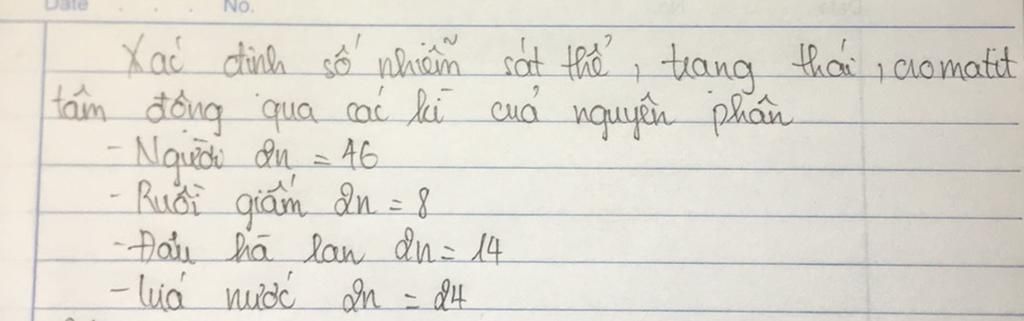 Date No.
Xác định số nhiễm sắt thể, trang thái, cromatit
tâm động qua các kì của nguyên phân
- Người 2n = 46
- Ruồi giấm 2n = 8
- Đậu hà lan 2n = 14
- lúa nước 2n = 24